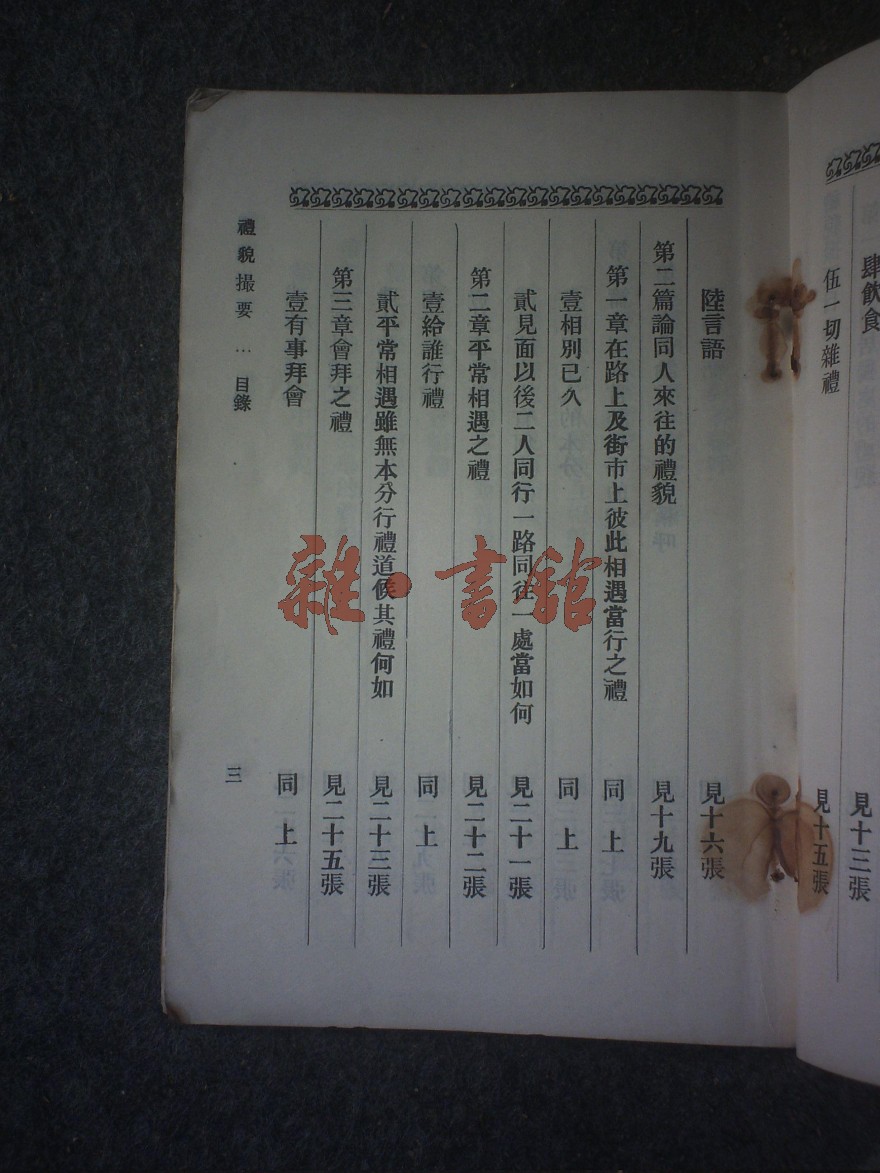 肆飲食 見十三張
伍一切雜禮 見十五張
陸言語 見十六張
第二篇論同人來往的禮貌 見十九張
第一章在路上及街市上彼此相遇當行之禮 同上
壹相別已久 同上
貳見面以後二人同行一路同往一處當如何 見二十一張
第二章平常相遇之禮 見二十二張
壹給誰行禮 同上
貳平常相遇雖無本分行禮道候其禮何如 見二十三張
第三章會拜之禮 見二十五張
壹有事拜會 同上
禮貌撮要 … 目錄 三
雜·書館